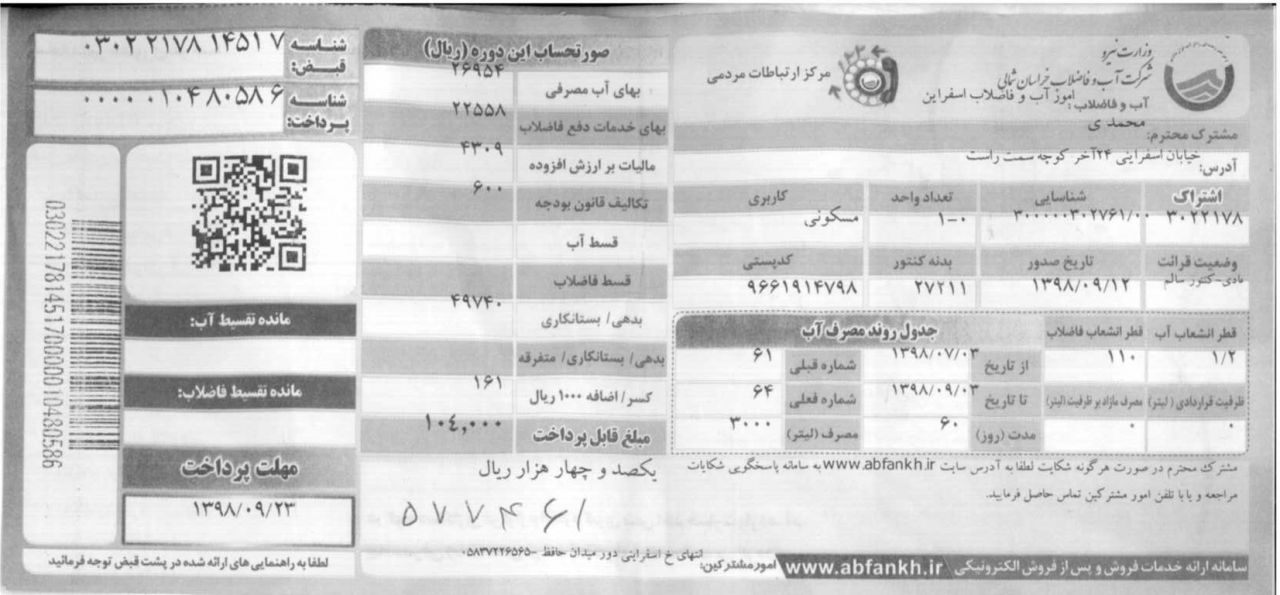 وزارت نیرو
شرکت آب و فاضلاب خراسان شمالی
آب و فاضلاب: امور آب و فاضلاب اسفراین
۱۲۲
مرکز ارتباطات مردمی
مشترک محترم: محمدی
آدرس: خیابان اسفراینی ۲۴آخر کوچه سمت راست
اشتراک شناسایی تعداد واحد کاربری
۳۰۲۲۱۷۸ ۳۰۰۰۰۰۳۰۲۷۶۱/۰۰ ۱-۰ مسکونی
وضعیت قرائت تاریخ صدور بدنه کنتور کدپستی
عادی-کنتور سالم ۱۳۹۸/۰۹/۱۲ ۲۷۲۱۱ ۹۶۶۱۹۱۴۷۹۸
قطر انشعاب آب قطر انشعاب فاضلاب جدول روند مصرف آب
۱/۲ ۱۱۰ از تاریخ ۱۳۹۸/۰۷/۰۳ شماره قبلی ۶۱
ظرفیت قراردادی (لیتر) مصرف مازاد بر ظرفیت (لیتر) تا تاریخ ۱۳۹۸/۰۹/۰۳ شماره فعلی ۶۴
۰ ۰ مدت (روز) ۶۰ مصرف (لیتر) ۳۰۰۰
مشترک محترم در صورت هرگونه شکایت لطفا به آدرس سایت www.abfankh.ir به سامانه پاسخگویی شکایات
مراجعه و یا با تلفن امور مشترکین تماس حاصل فرمایید.
سامانه ارائه خدمات فروش و پس از فروش الکترونیکی www.abfankh.ir امور مشترکین: انتهای خ اسفراینی دور میدان حافظ -۰۵۸۳۷۲۲۶۵۶۵
صورتحساب این دوره (ریال)
بهای آب مصرفی ۲۶۹۵۴
بهای خدمات دفع فاضلاب ۲۲۵۵۸
مالیات بر ارزش افزوده ۴۳۰۹
تکالیف قانون بودجه ۶۰۰
قسط آب
قسط فاضلاب
بدهی/ بستانکاری ۴۹۷۴۰
بدهی/ بستانکاری/ متفرقه
کسر/ اضافه ۱۰۰۰ ریال ۱۶۱
مبلغ قابل پرداخت ۱۰۴,۰۰۰
یکصد و چهار هزار ریال
شناسه قبض: ۰۳۰۲۲۱۷۸۱۴۵۱۷
شناسه پرداخت: ۰۰۰۰۰۱۰۴۸۰۵۸۶
03022178145170000010480586
مانده تقسیط آب:
مانده تقسیط فاضلاب:
مهلت پرداخت
۱۳۹۸/۰۹/۲۳
لطفا به راهنمایی های ارائه شده در پشت قبض توجه فرمائید